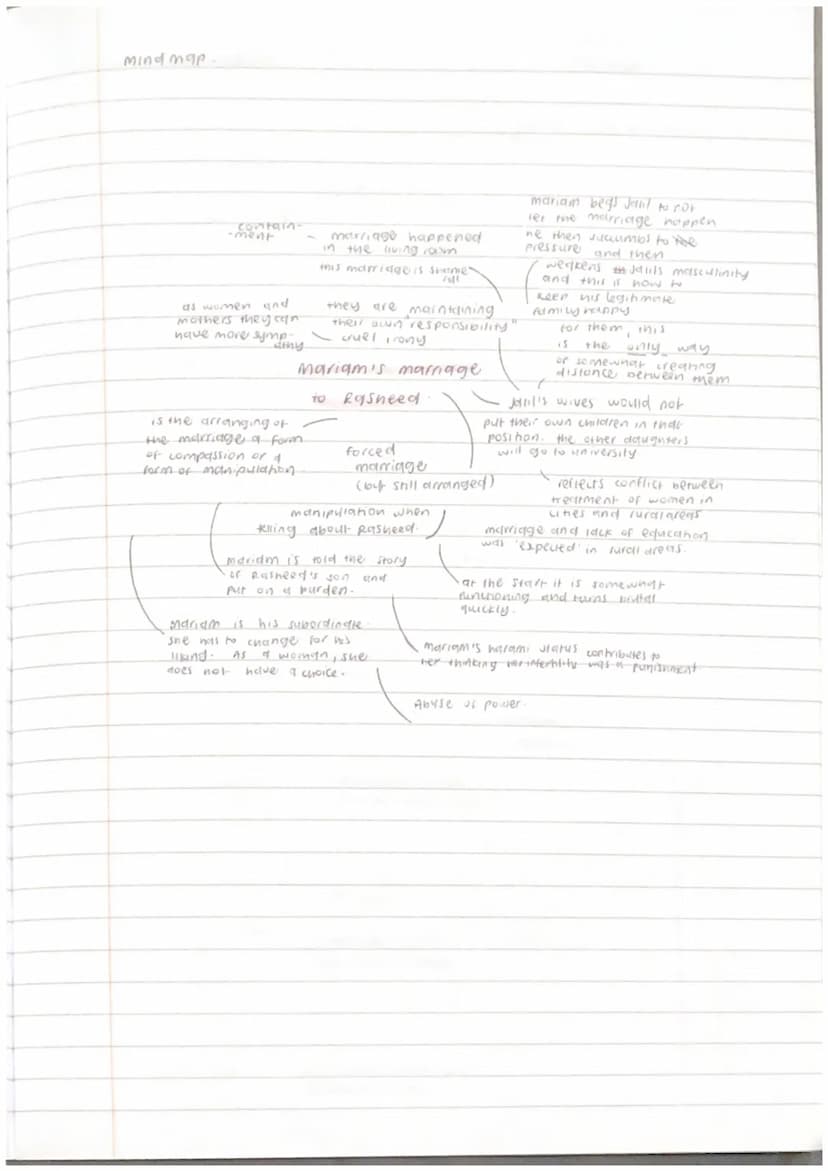 mind map.
contain-
-ment
- marriage happened
in the living room
this marriage is shame
ful
mariam begs Jalil to not
let the marriage happen
he then succumbs to the
pressure and then
weakens Jalil's masculinity
and this is how to
keep his legitimate
family happy
for them, this
is the only way
of somewhat creating
distance between them
as women and
mothers they can
have more symp-
athy
they are "maintaining
their own responsibility"
cruel irony
Mariam's marriage
to Rasheed.
Jalil's wives would not
put their own children in that
position. the other daughters
will go to university
is the arranging of
the marriage a form
of compassion or a
form of manipulation
forced
marriage
(but still arranged)
reflects conflict between
treatment of women in
cities and rural areas
marriage and lack of education
was 'expected' in rural areas.
manipulation when
telling about Rasheed.
mariam is told the story
of Rasheed's son and
put on a burden.
at the start it is somewhat
functioning and turns brutal
quickly.
Mariam is his subordinate.
she has to change for his
liking. As a woman, she
does not have a choice.
mariam's harami status contributes to
her thinking her infertility was a punishment
Abuse of power.